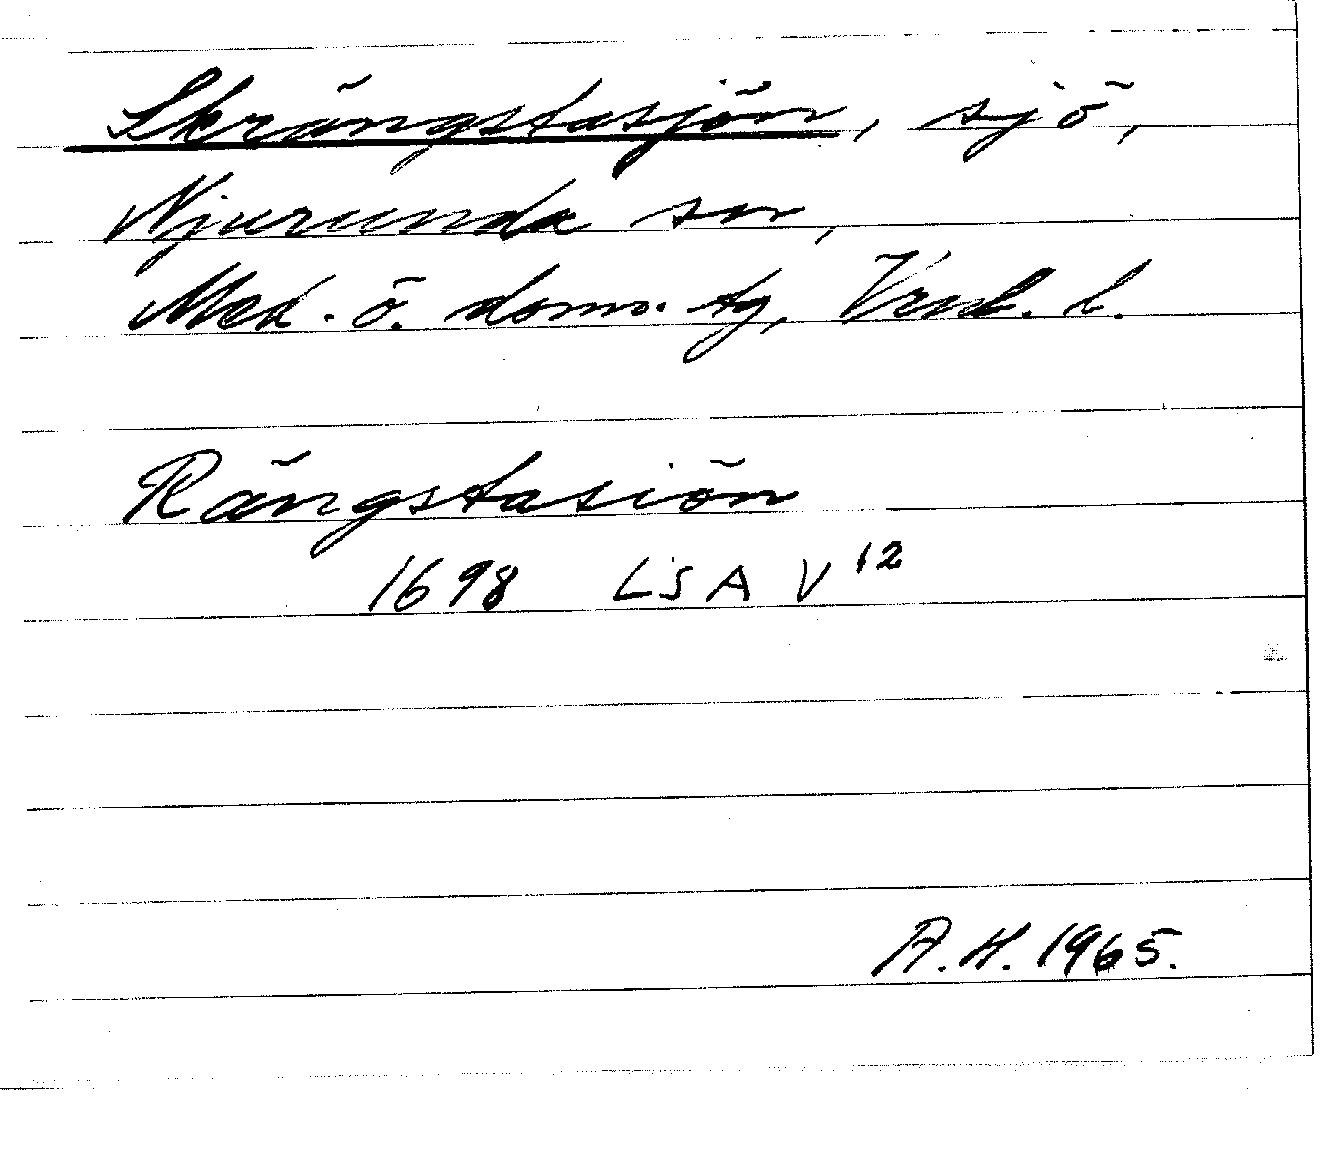 Skrängstasjön, sjö,
Njurunda sn,
Med. ö. doms. tg, Vnl. l.
Rängstasiön
1698 LSA V 12
A.H. 1965.